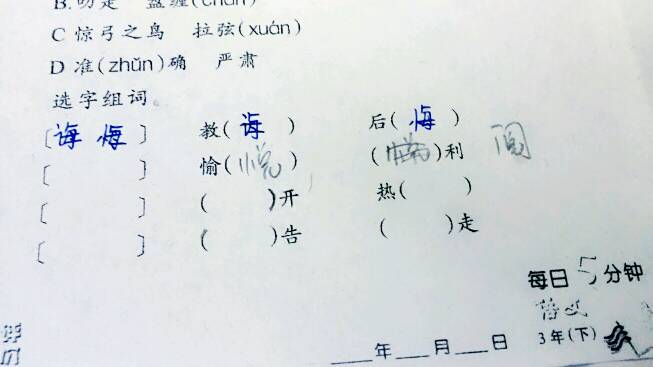 B.勿是 盘缠(chán)
C 惊弓之鸟 拉弦(xuán)
D 准(zhǔn)确 严肃
选字组词。
[诲 悔] 教(诲) 后(悔)
[ ] 愉(悦) ( )利 阅
[ ] ( )开 热( )
[ ] ( )告 ( )走
每日5分钟
语文
3年(下)
___年___月___日